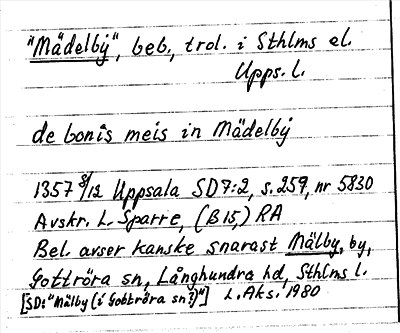 "Mädelby", beb., trol. i Sthlms el.
Upps. l.
de bonis meis in Mädelby
1357 8/12 Uppsala SD7:2, s. 259, nr 5830
Avskr. L. Sparre, (B 15,) RA
Bel. avser kanske snarast Mälby, by,
Gottröra sn, Långhundra hd, Sthlms l.
[SD: "Mälby (i Gottröra sn?)"] L. Aks. 1980